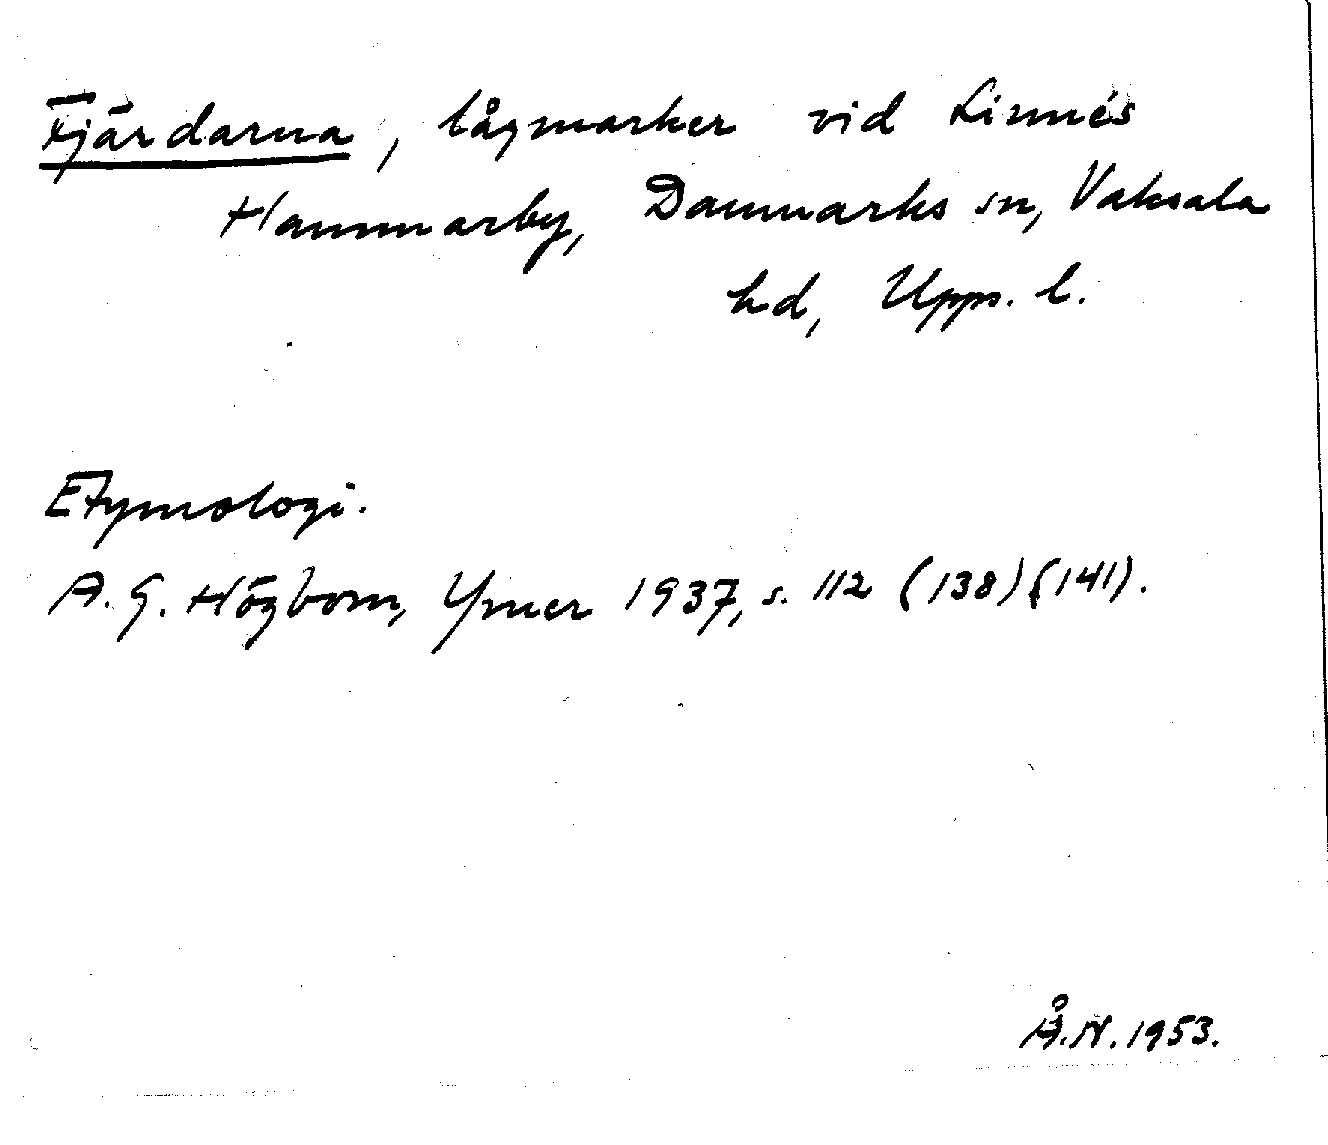 Fjärdarna, lågmarker vid Linnés
Hammarby, Danmarks sn, Vaksala
hd, Upps. l.
Etymologi.
A. G. Högbom, Ymer 1937, s. 112 (138) (141).
Å.N. 1953.